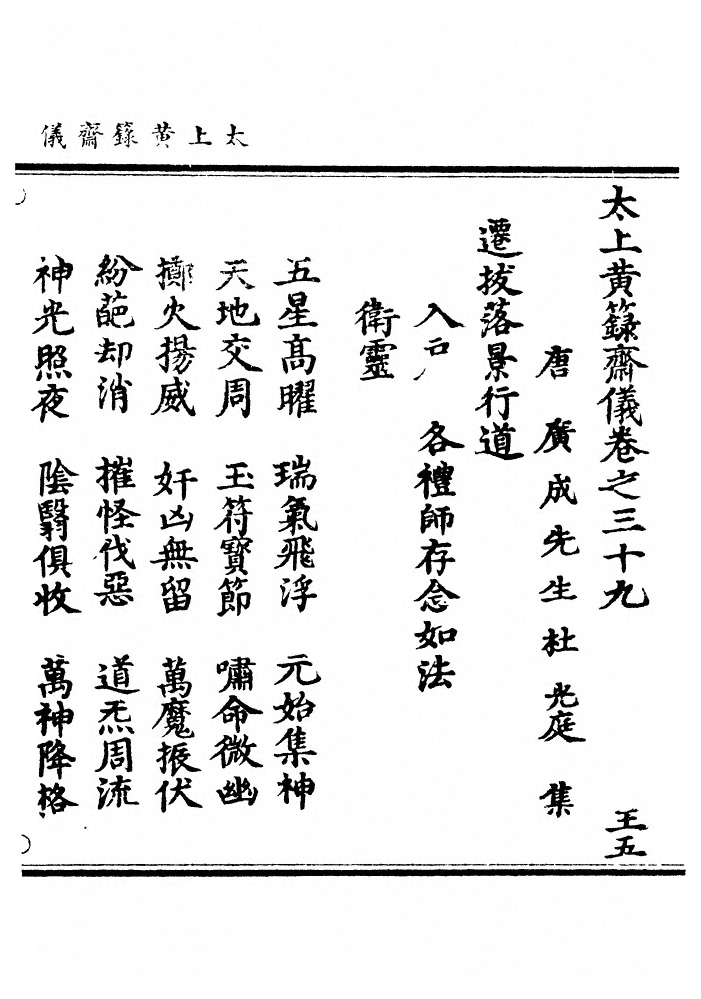 太上黃籙齋儀
太上黃籙齋儀卷之三十九　王五
唐廣成先生杜光庭　集
遷拔落景行道
入戶　各禮師存念如法
衛靈
五星高曜　瑞氣飛浮　元始集神
天地交周　玉符寶節　嘯命微幽
擲火揚威　奸凶無留　萬魔振伏
紛葩却消　摧怪伐惡　道炁周流
神光照夜　陰翳俱收　萬神降格